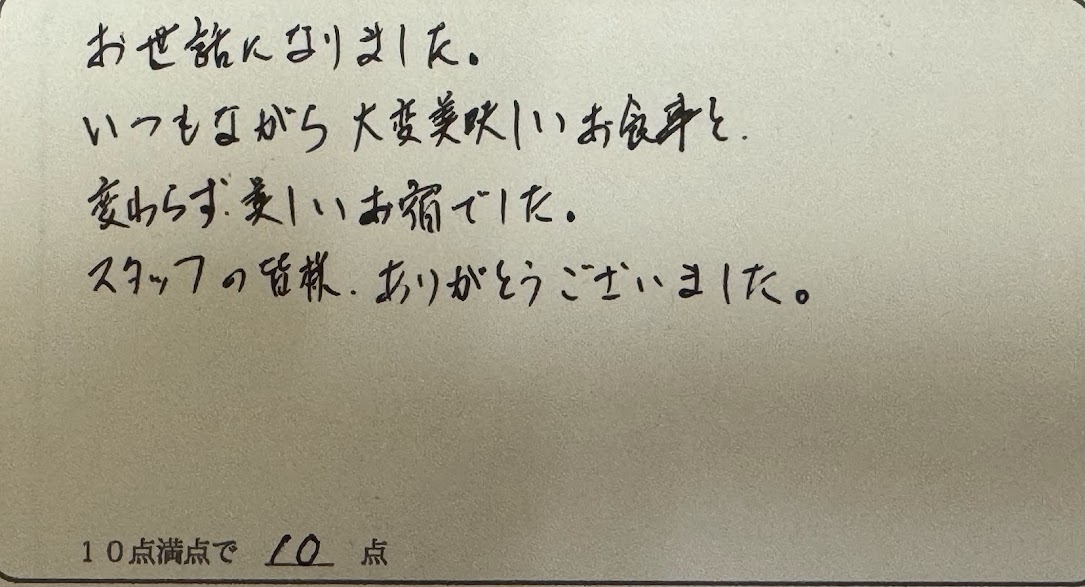 お世話になりました。
いつもながら大変美味しいお食事と、
変わらず、美しいお宿でした。
スタッフの皆様、ありがとうございました。
10点満点で 10 点